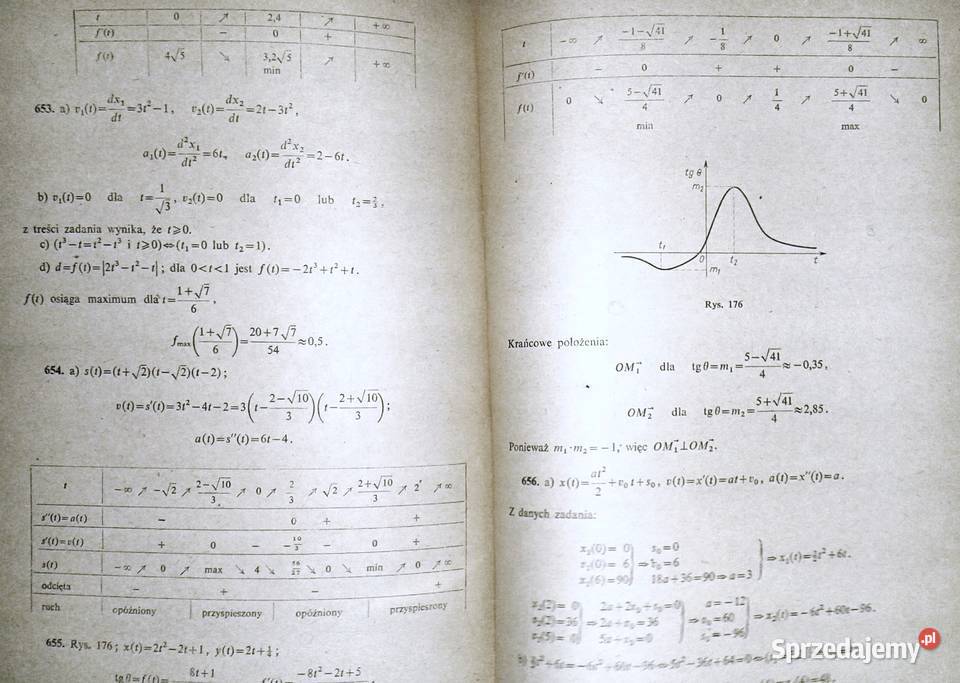 t 0 ↗ 2,4 ↗ +∞
f'(t) − 0 +
f(t) 4√5 ↘ 3,2√5 min ↗ +∞
653. a) v₁(t)=dx₁/dt=3t²−1, v₂(t)=dx₂/dt=2t−3t²,
a₁(t)=d²x₁/dt²=6t, a₂(t)=d²x₂/dt²=2−6t.
b) v₁(t)=0 dla t=1/√3, v₂(t)=0 dla t₁=0 lub t₂=⅔,
z treści zadania wynika, że t⩾0.
c) (t³−t=t²−t³ i t⩾0)⇔(t₁=0 lub t₂=1).
d) d=f(t)=|2t³−t²−t|; dla 0<t<1 jest f(t)=−2t³+t²+t.
f(t) osiąga maximum dla t=(1+√7)/6,
fmax((1+√7)/6)=(20+7√7)/54≈0,5.
654. a) s(t)=(t+√2)(t−√2)(t−2);
v(t)=s'(t)=3t²−4t−2=3(t−(2−√10)/3)(t−(2+√10)/3);
a(t)=s''(t)=6t−4.
t −∞ ↗ −√2 ↗ (2−√10)/3 ↗ 0 ↗ 2/3 ↗ √2 ↗ (2+√10)/3 ↗ 2 ↗ ∞
s''(t)=a(t) − 0 + +
s'(t)=v(t) + 0 − −10/3 − 0 +
s(t) −∞ ↗ 0 ↗ max ↘ 4 ↘ ↘ 0 ↘ min ↗ 0 ↗ ∞
odcięta − + − +
ruch opóźniony przyspieszony opóźniony przyspieszony
655. Rys. 176; x(t)=2t²−2t+1, y(t)=2t+¼;
tg θ=f(t)= 8t+1 f'(t)= −8t²−2t+5
t −∞ ↗ (−1−√41)/8 ↗ −1/8 ↗ 0 ↗ (−1+√41)/8 ↗ ∞
f'(t) − 0 + + 0 −
f(t) 0 ↘ (5−√41)/4 ↗ 0 ↗ 1/4 ↗ (5+√41)/4 ↘ 0
min max
tg θ
m₂
t₁ 0 t₂ t
m₁
Rys. 176
Krańcowe położenia:
OM₁→ dla tgθ=m₁=(5−√41)/4≈−0,35,
OM₂→ dla tgθ=m₂=(5+√41)/4≈2,85.
Ponieważ m₁·m₂=−1, więc OM₁→⊥OM₂→.
656. a) x(t)=at²/2+v₀t+s₀, v(t)=x'(t)=at+v₀, a(t)=x''(t)=a.
Z danych zadania:
x₁(0)= 0 s₀=0
v₁(0)= 6 ⇒ v₀=6 ⇒x₁(t)=3/2t²+6t.
x₁(6)=90 18a+36=90⇒a=3
x₂(2)= 0 2a+2v₀+s₀=0 a=−12
v₂(2)=36 ⇒ 2a+v₀=36 ⇒ v₀=60 ⇒x₂(t)=−6t²+60t−96.
v₂(5)= 0 5a+v₀=0 s₀=−96
b) 3/2t²+6t=−6t²+60t−96
Sprzedajemy.pl